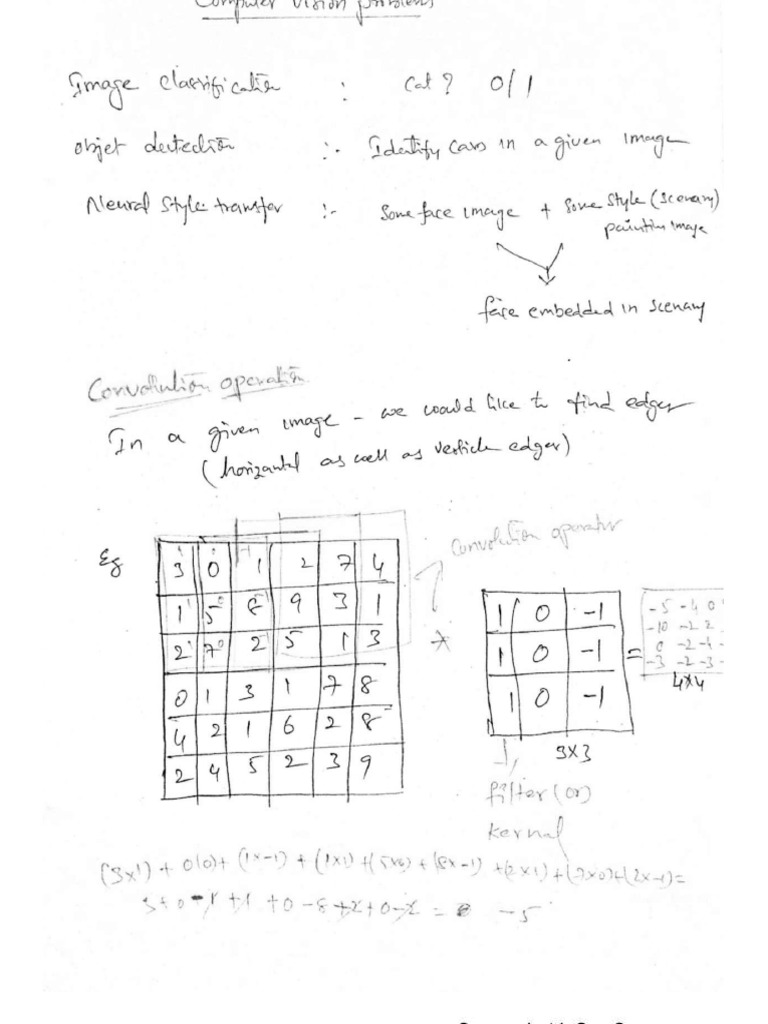 Computer vision problems
Image classification : Cat ? 0/1
objet detection :- Identify cars in a given image
Neural style transfer :- Some face image + Some style (scenary)
painting image
face embedded in scenary
Convolution operation
In a given image - we would like to find edges
(horizantal as well as verticle edges)
Eg
convolution operator
3 0 1 2 7 4
1 5 8 9 3 1
2 7 2 5 1 3
0 1 3 1 7 8
4 2 1 6 2 8
2 4 5 2 3 9
*
1 0 -1
1 0 -1
1 0 -1
3x3
=
-5 -4 0
-10 -2 2
0 -2 -4
-3 -2 -3
4x4
filter (or)
kernal
(3x1) + 0(0) + (1x-1) + (1x1) + (5x0) + (8x-1) + (2x1) + (7x0) + (2x-1) =
3 + 0 - 1 + 1 + 0 - 8 + 2 + 0 - 2 = -5